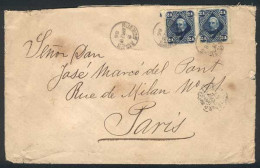 Señor Don
José Marcó del Pont
Rue de Milan Nº
Paris